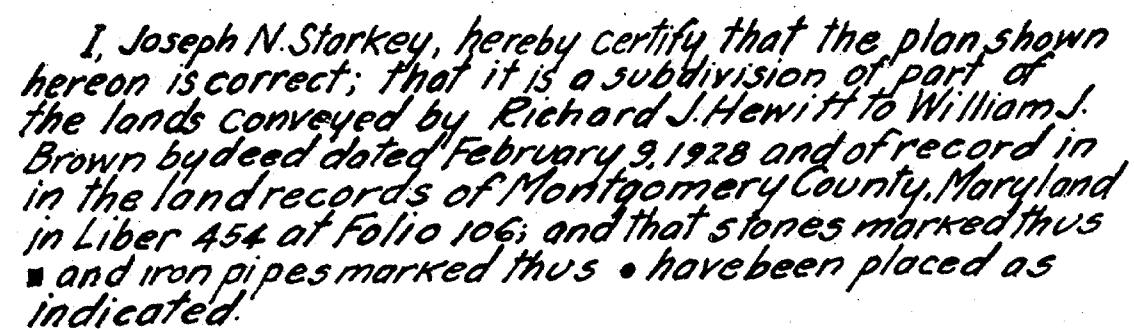 I, Joseph N. Starkey, hereby certify that the plan shown
hereon is correct; that it is a subdivision of part of
the lands conveyed by Richard J. Hewitt to William J.
Brown by deed dated February 9, 1928 and of record in
in the land records of Montgomery County, Maryland
in Liber 454 at Folio 106; and that stones marked thus
■ and iron pipes marked thus ● have been placed as
indicated.